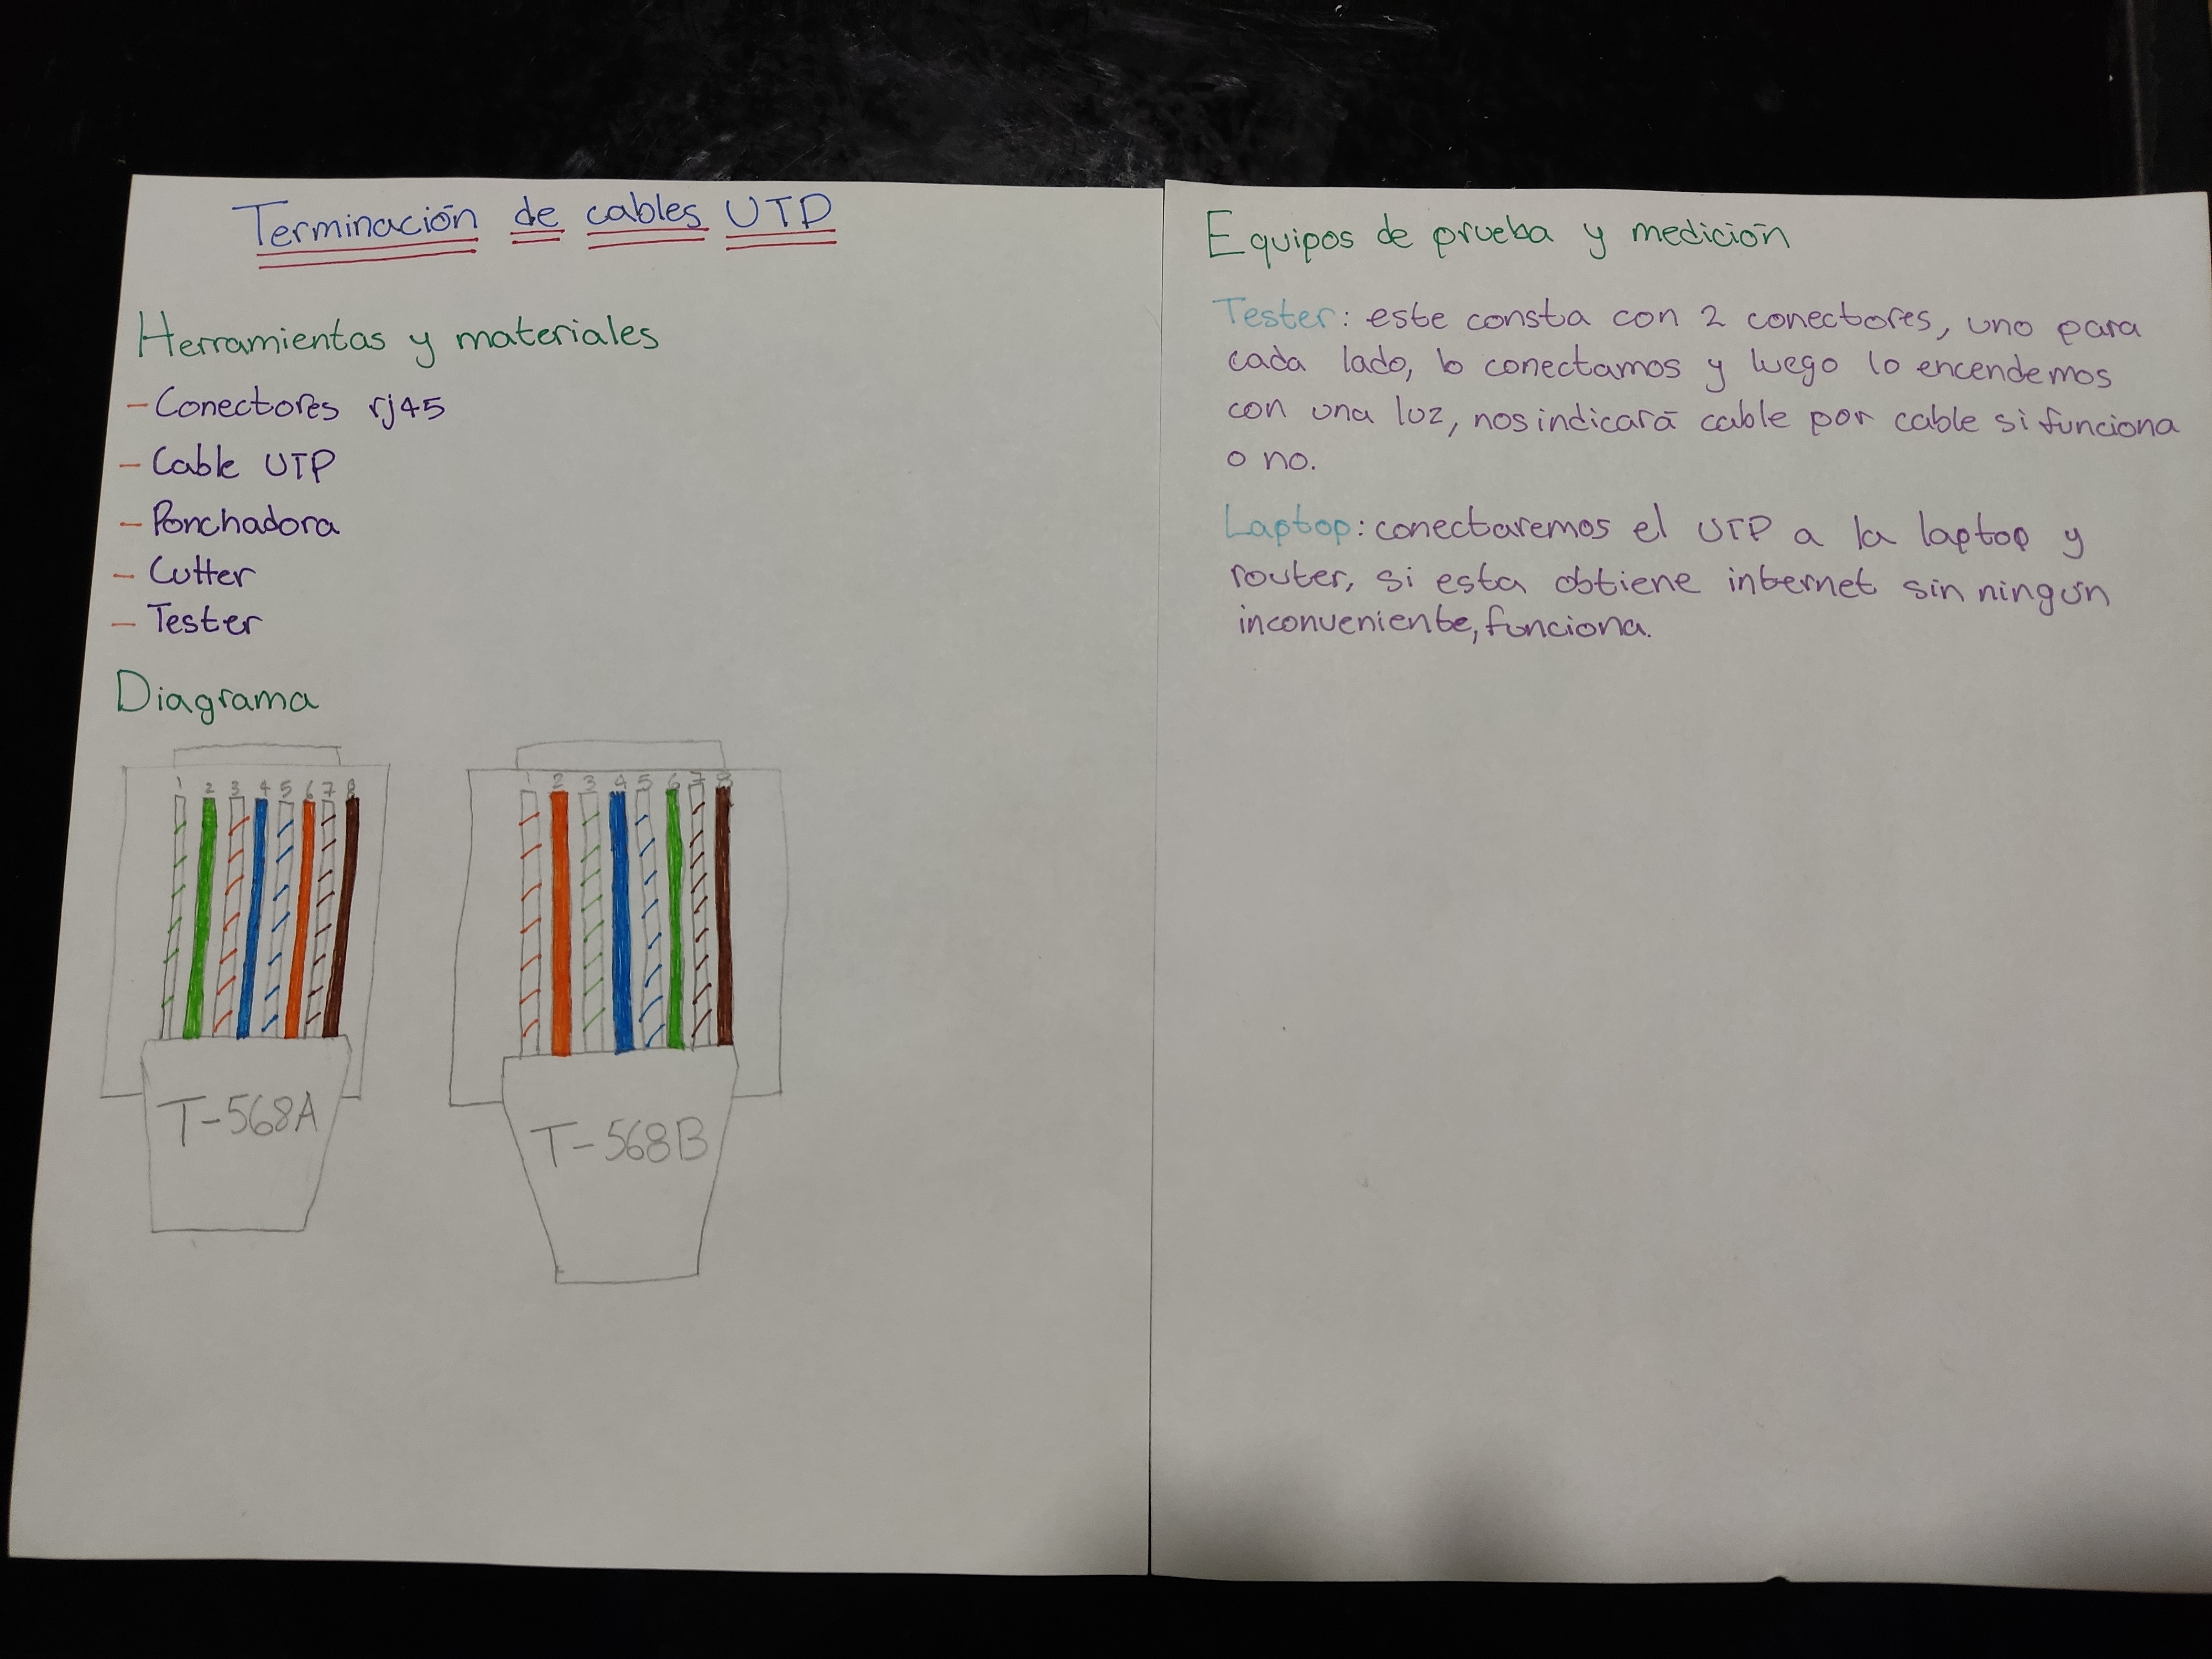 Terminación de cables UTP
Herramientas y materiales
- Conectores rj45
- Cable UTP
- Ponchadora
- Cutter
- Tester
Diagrama
1 2 3 4 5 6 7 8
T-568A
1 2 3 4 5 6 7 8
T-568B
Equipos de prueba y medición
Tester: este consta con 2 conectores, uno para
cada lado, lo conectamos y luego lo encendemos
con una luz, nos indicará cable por cable si funciona
o no.
Laptop: conectaremos el UTP a la laptop y
router, si esta obtiene internet sin ningún
inconveniente, funciona.